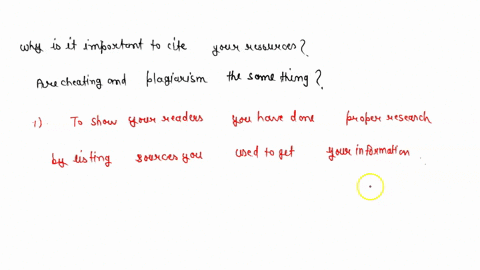 Why is it important to cite your resources?
Are cheating and plagiarism the same thing?
1). To show your readers you have done proper research
by listing sources you used to get your information